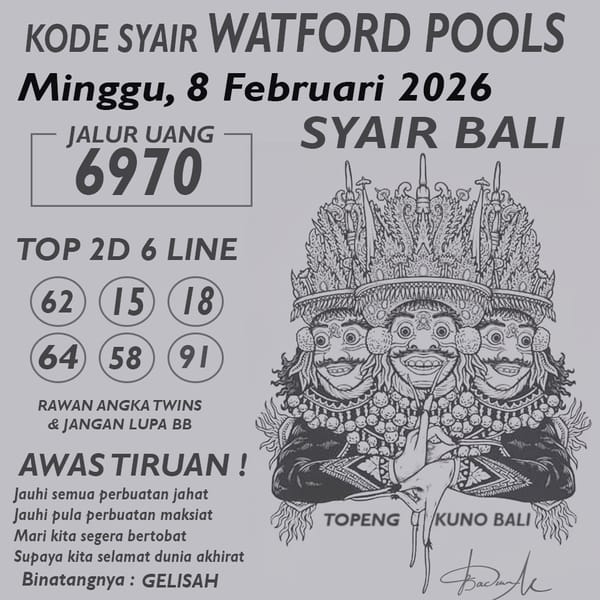 KODE SYAIR WATFORD POOLS
Minggu, 8 Februari 2026
JALUR UANG
6970
SYAIR BALI
TOP 2D 6 LINE
62 15 18
64 58 91
RAWAN ANGKA TWINS
& JANGAN LUPA BB
AWAS TIRUAN !
Jauhi semua perbuatan jahat
Jauhi pula perbuatan maksiat
Mari kita segera bertobat
Supaya kita selamat dunia akhirat
Binatangnya : GELISAH
TOPENG KUNO BALI